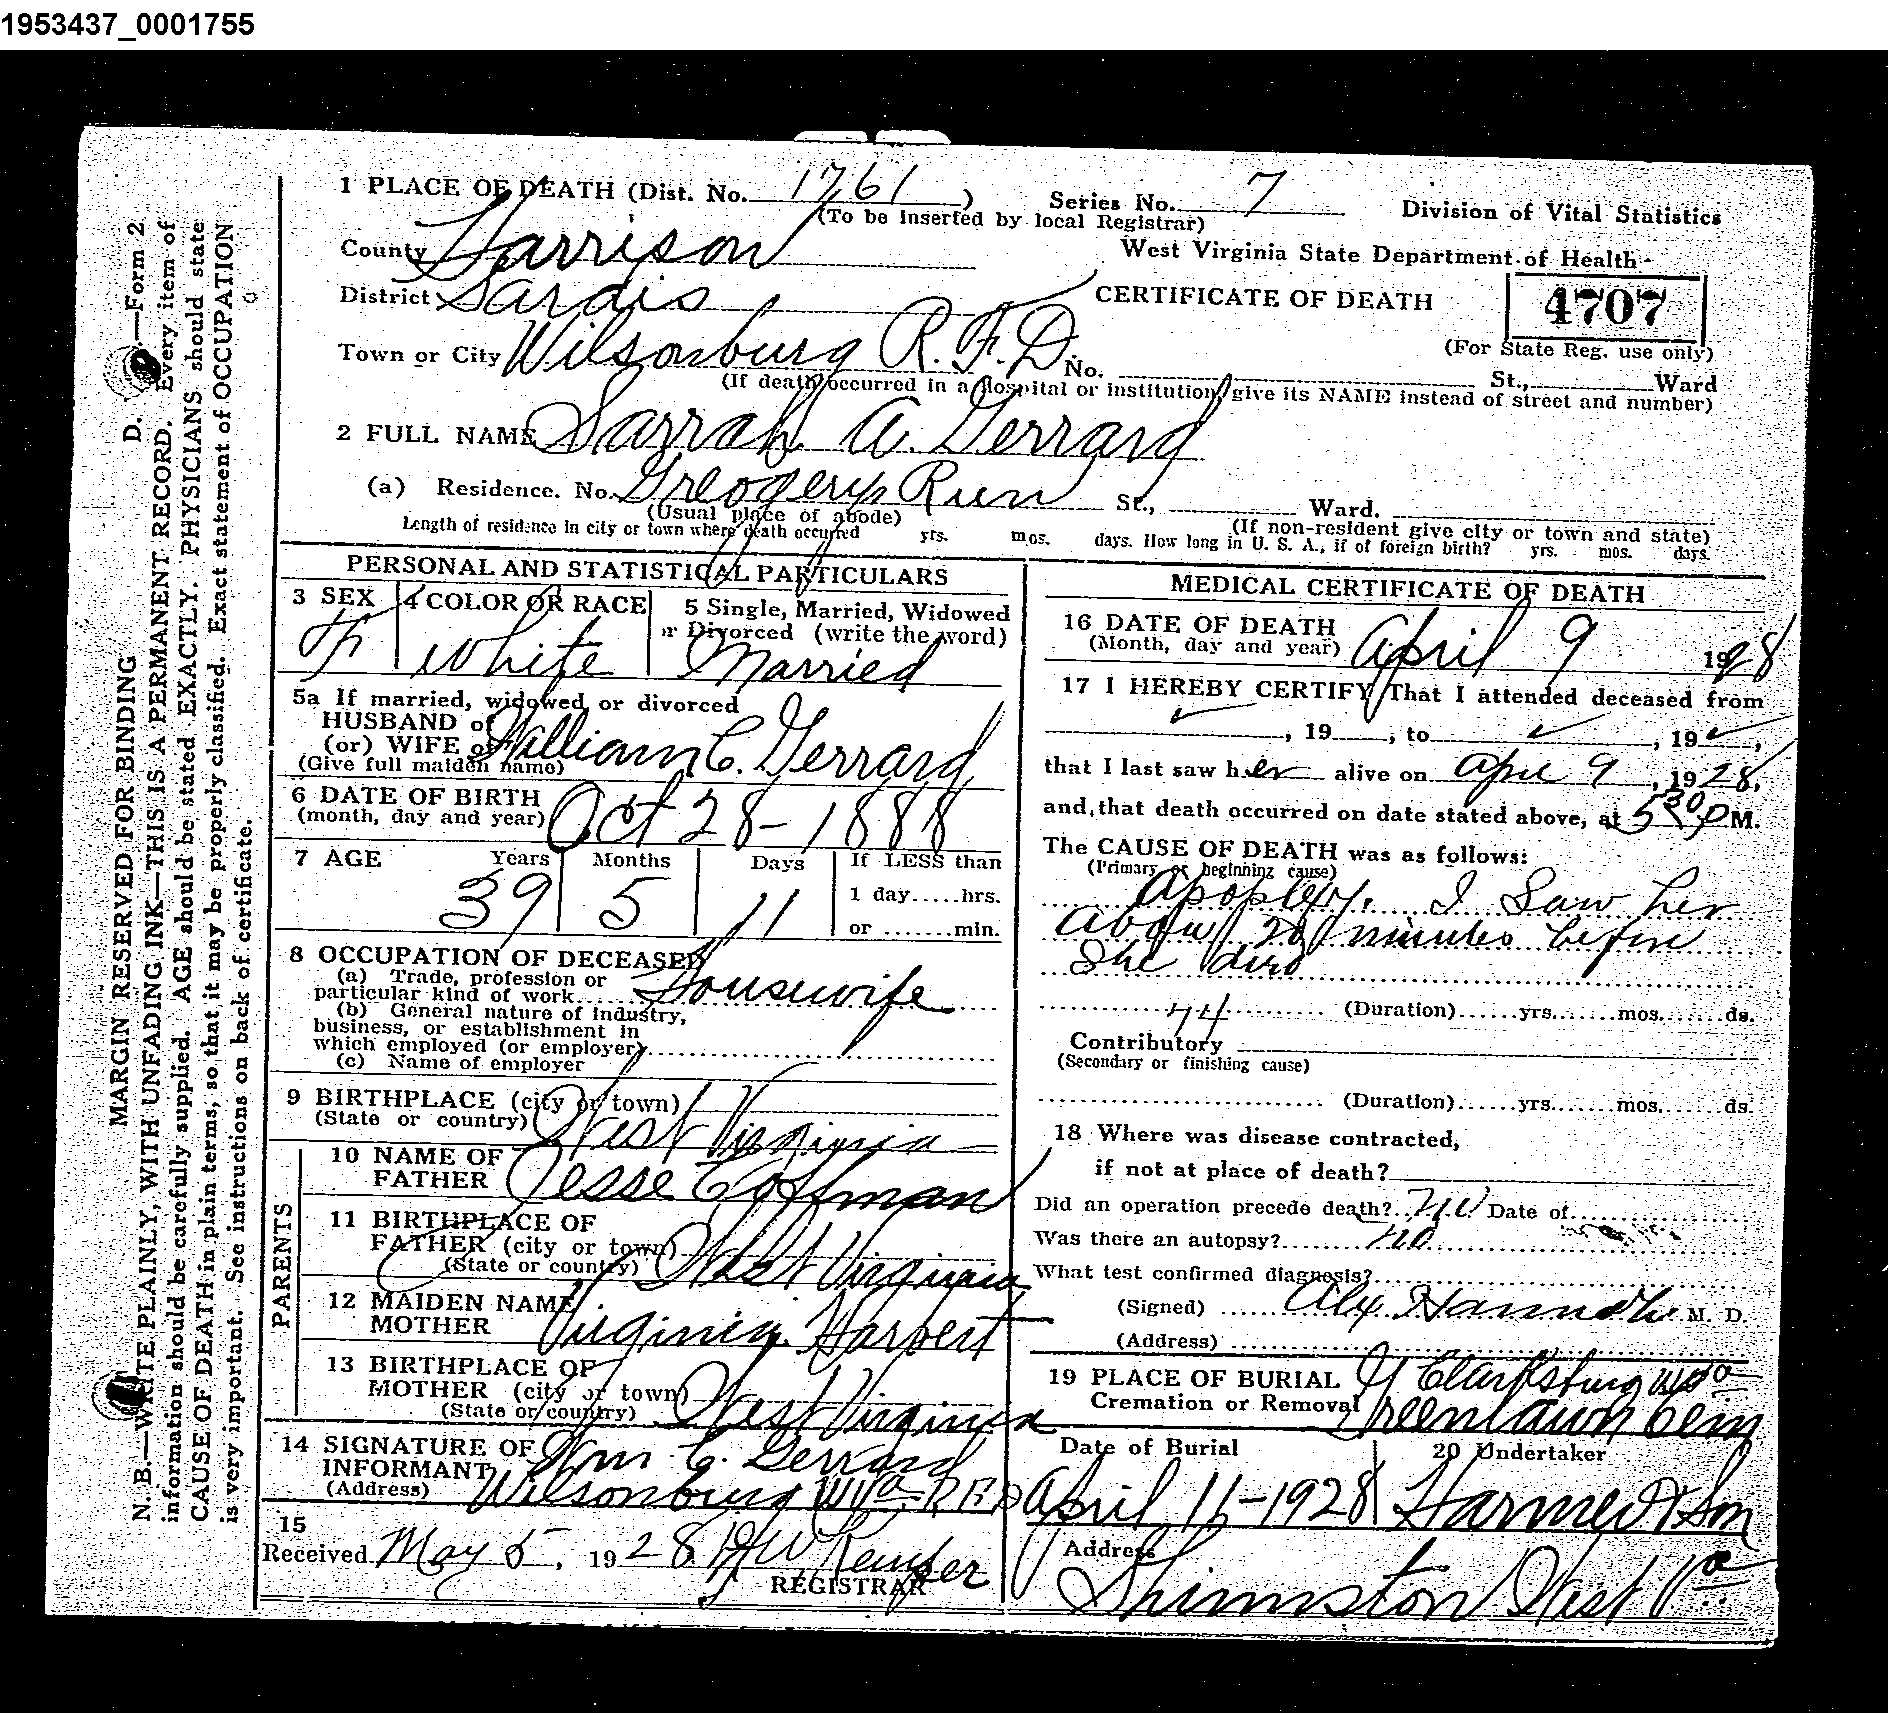 1953437_0001755
1 PLACE OF DEATH (Dist. No. 1761 ) Series No. 7 Division of Vital Statistics
(To be inserted by local Registrar)
County Harrison West Virginia State Department of Health
District Sardis CERTIFICATE OF DEATH 4707
Town or City Wilsonburg R.F.D. No. St., Ward (For State Reg. use only)
(If death occurred in a hospital or institution, give its NAME instead of street and number)
2 FULL NAME Sarrah A. Gerrard
(a) Residence. No. Greogerys Run St., Ward.
(Usual place of abode) (If non-resident give city or town and state)
Length of residence in city or town where death occurred yrs. mos. days. How long in U. S. A., if of foreign birth? yrs. mos. days.
PERSONAL AND STATISTICAL PARTICULARS
3 SEX 4 COLOR OR RACE 5 Single, Married, Widowed
or Divorced (write the word)
F white Married
5a If married, widowed, or divorced
HUSBAND of
(or) WIFE of William C. Gerrard
(Give full maiden name)
6 DATE OF BIRTH
(month, day and year) Oct 28-1888
7 AGE Years Months Days If LESS than
39 5 11 1 day.....hrs.
or .......min.
8 OCCUPATION OF DECEASED
(a) Trade, profession or
particular kind of work Housewife
(b) General nature of industry,
business, or establishment in
which employed (or employer)
(c) Name of employer
9 BIRTHPLACE (city or town)
(State or country) West Virginia
PARENTS
10 NAME OF
FATHER Jesse Coffman
11 BIRTHPLACE OF
FATHER (city or town)
(State or country) West Virginia
12 MAIDEN NAME
MOTHER Virginia Harbert
13 BIRTHPLACE OF
MOTHER (city or town)
(State or country) West Virginia
14 SIGNATURE OF
INFORMANT Wm C. Gerrard
(Address) Wilsonburg WVa RFD
15
Received May 5, 1928
REGISTRAR
MEDICAL CERTIFICATE OF DEATH
16 DATE OF DEATH
(Month, day and year) April 9 1928
17 I HEREBY CERTIFY That I attended deceased from
, 19 , to , 19 ,
that I last saw her alive on Apri 9, 1928,
and that death occurred on date stated above, at 530 P M.
The CAUSE OF DEATH was as follows:
(Primary or beginning cause)
Apoplexy. I Saw her
about 20 minutes before
She died
(Duration)......yrs.......mos.......ds.
Contributory
(Secondary or finishing cause)
(Duration)......yrs.......mos.......ds.
18 Where was disease contracted,
if not at place of death?
Did an operation precede death? No Date of
Was there an autopsy? no
What test confirmed diagnosis?
(Signed) Alex M. D.
(Address)
19 PLACE OF BURIAL Clarksburg WVa
Cremation or Removal Greenlawn Cem
Date of Burial 20 Undertaker
April 11-1928 Harmer & Son
Address
Shinnston West Va
MARGIN RESERVED FOR BINDING D. —Form 2
N. B.—WRITE PLAINLY, WITH UNFADING INK—THIS IS A PERMANENT RECORD. Every item of
information should be carefully supplied. AGE should be stated EXACTLY. PHYSICIANS should state
CAUSE OF DEATH in plain terms, so that it may be properly classified. Exact statement of OCCUPATION
is very important. See instructions on back of certificate.